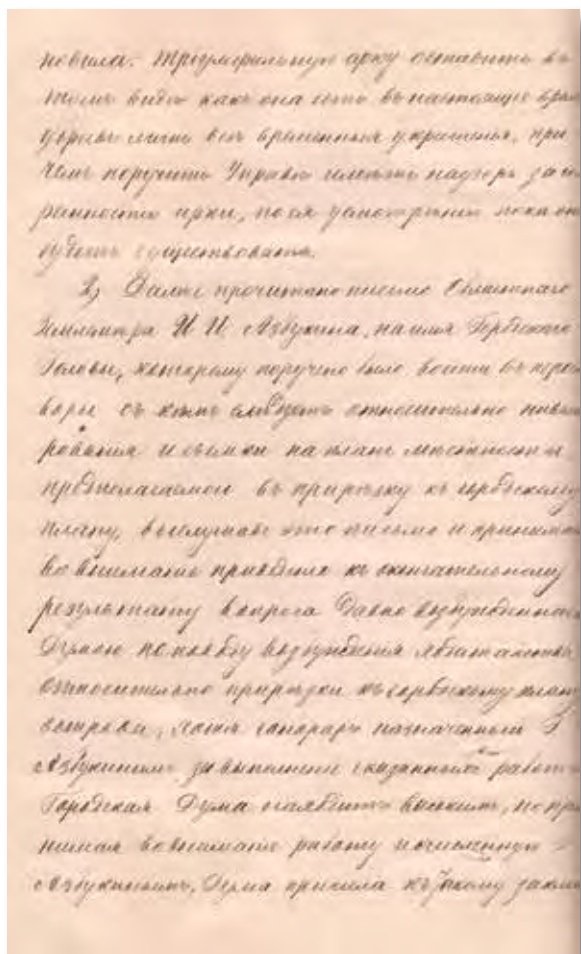 новила: Триумфальную арку оставить въ
томъ виде какъ она есть въ настоящее врем
лишь все временныя украшения, при
чемъ поручить Управе иметь надзоръ за со
ранностью арки, по ея усмотрению пока она
будетъ существовать.
2) Далее прочитано письмо Областнаго
Землемера И И Азбукина, на имя Городского
Головы, которому поручено было войти въ перего
воры съ кемъ следуетъ относительно нивели
рования и съемки на планъ местности
предполагаемой въ прирезку къ городскому
плану, выслушавъ это письмо и принимая
во внимание къ окончательному
результату вопроса давно возбужденнаго
Думою по поводу возбуждения ходатайства
относительно прирезки къ городскому плану
хотя гонораръ назначенный Г
Азбукинымъ за выполнение сказанныхъ работъ
Городская Дума высокимъ, но при
нимая во внимание работу исчисленную
Азбукинымъ, Дума пришла къ такому заклю